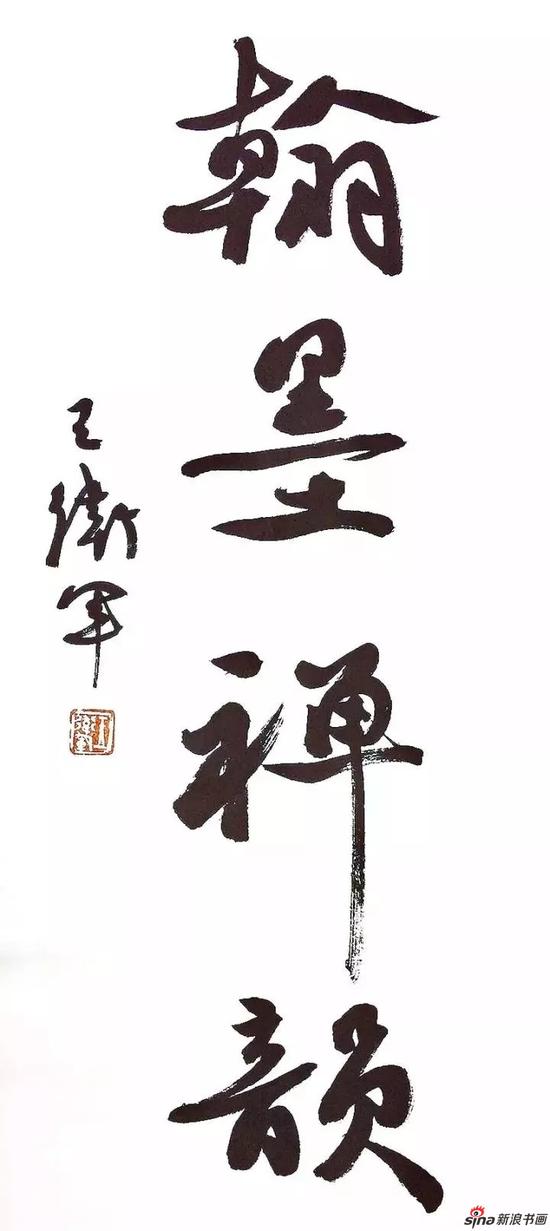 翰墨禅韵
王卫军
sina新浪书画